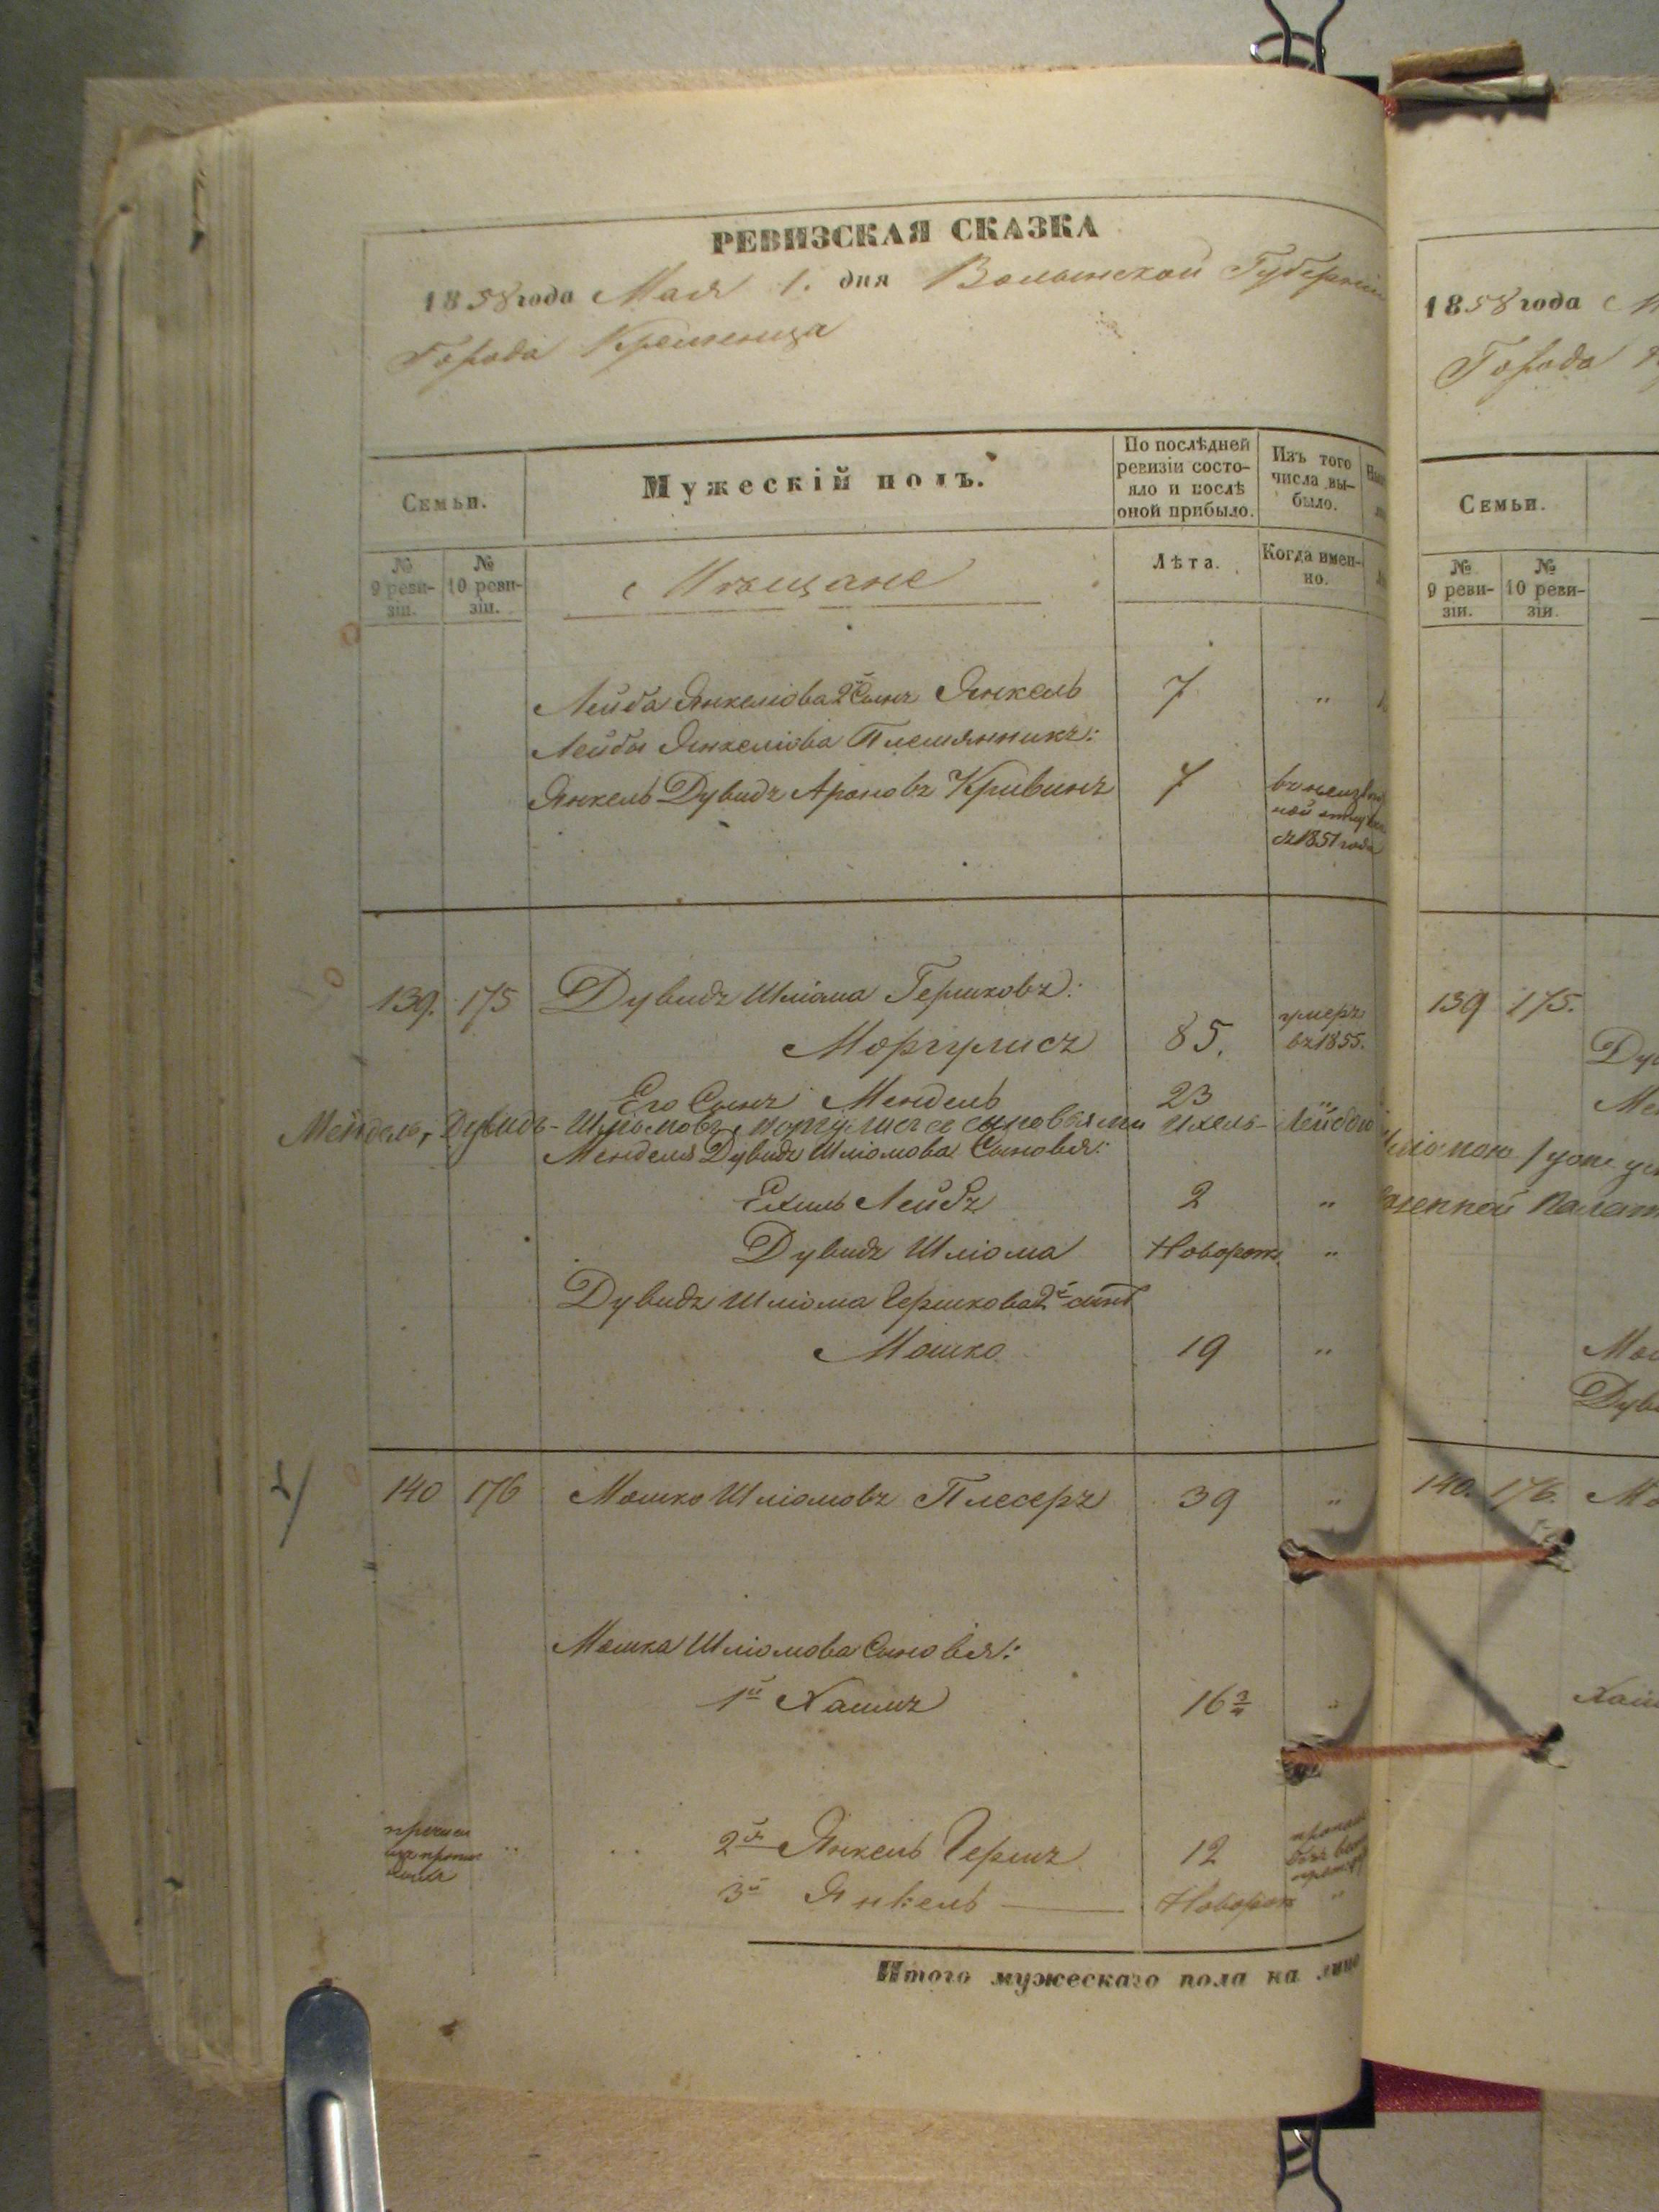 РЕВИЗСКАЯ СКАЗКА
1858 года Мая 1. дня Волынской Губерніи
Города Кременца
Семьи.
Мужескій полъ.
По послѣдней ревизіи состо-
яло и послѣ
оной прибыло.
Изъ того
числа вы-
было.
№
9 реви-
зіи.
№
10 реви-
зіи.
Мѣщане
Лѣта.
Когда имен-
но.
Лейба Янкеліова 2й Сынъ Янкель 7 "
Лейбы Янкеліова Племянникъ:
Янкель Дувидъ Ароновъ Кривинъ 7
съ 1851 года
139. 175 Дувидъ Шліома Гершковъ:
Моргулисъ 85. умеръ
въ 1855.
Его Сынъ Мендель 23 "
Мендель, Дувидъ-Шліомовъ Моргулисъ съ сыновьями Ихель-Лейбою
Менделя Дувидъ Шліомова Сыновья:
Ехиль Лейбъ 2 "
Дувидъ Шліома Новорож. "
Дувидъ Шліома Гершкова 2й сынъ
Мошко 19 "
140 176 Мошко Шліомовъ Плесеръ 39 "
Мошка Шліомова Сыновья:
1й Хаимъ 16 3/4 "
2й Янкель Гершъ 12
3й Янкель Новорож "
Итого мужескаго пола на лицо
1858 года
Города
Семьи.
№
9 реви-
зіи.
№
10 реви-
зіи.
139 175.
140. 176.